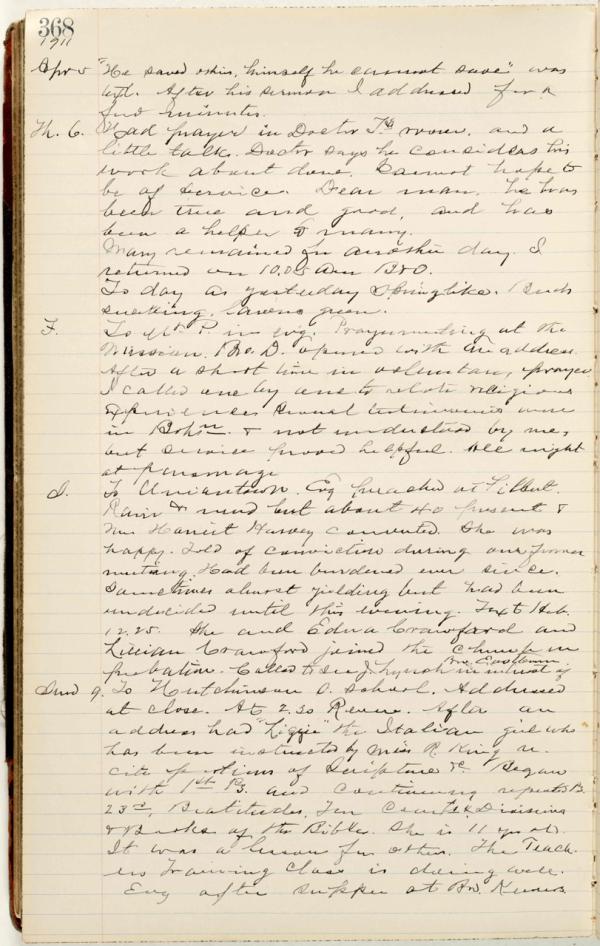 368
1911
Apr 5 "He saved others, himself he cannot save" was
text. After his sermon I addressed for a
few minutes.
Th. 6. Had prayer in Doctor T's room, and a
little talk. Doctor says he considers his
work about done. Cannot hope to
be of service. Dear man, he has
been true and good, and has
been a helper to many.
Mary remained for another day. I
returned on 10.05 am B&O.
To day as yesterday springlike. Buds
swelling, lawns green.
F. To Mt P. in evg. Prayermeeting at the
Mission. Bro. D. opened with an address.
After a short time in voluntary prayer
I called one by one to relate religious
experiences. Several testimonies were
in Bohn. & not understood by me,
but service proved helpful. All night
at parsonage
S. To Uniontown. Evg preached at Filbert.
Rain & mud but about 40 present &
Mrs Harriet Harvey converted. She was
happy. Told of conviction during our former
meeting. Had been burdened ever since.
Sometimes almost yielding but had been
undecided until this evening. Text Heb.
12.25. She and Edna Crawford and
Lillian Crawford joined the Church on
probation. Called to see J. Lynch in interest of
Bro. Eastburn
Sund 9. To Hutchinson S. School. Addressed
at close. At 2.30 Revere. After an
address had "Liggie" the Italian girl who
has been instructed by Miss R. King re-
cite portions of Scripture &c. Began
with 1st Ps. and continuing repeated Ps.
23rd, Beatitudes, Ten Comts & Divisions
& Books of the Bible. She is 11 yrs old.
It was a lesson for others. The Teach-
ers Training Class is doing well.
Evg after supper at Bro.